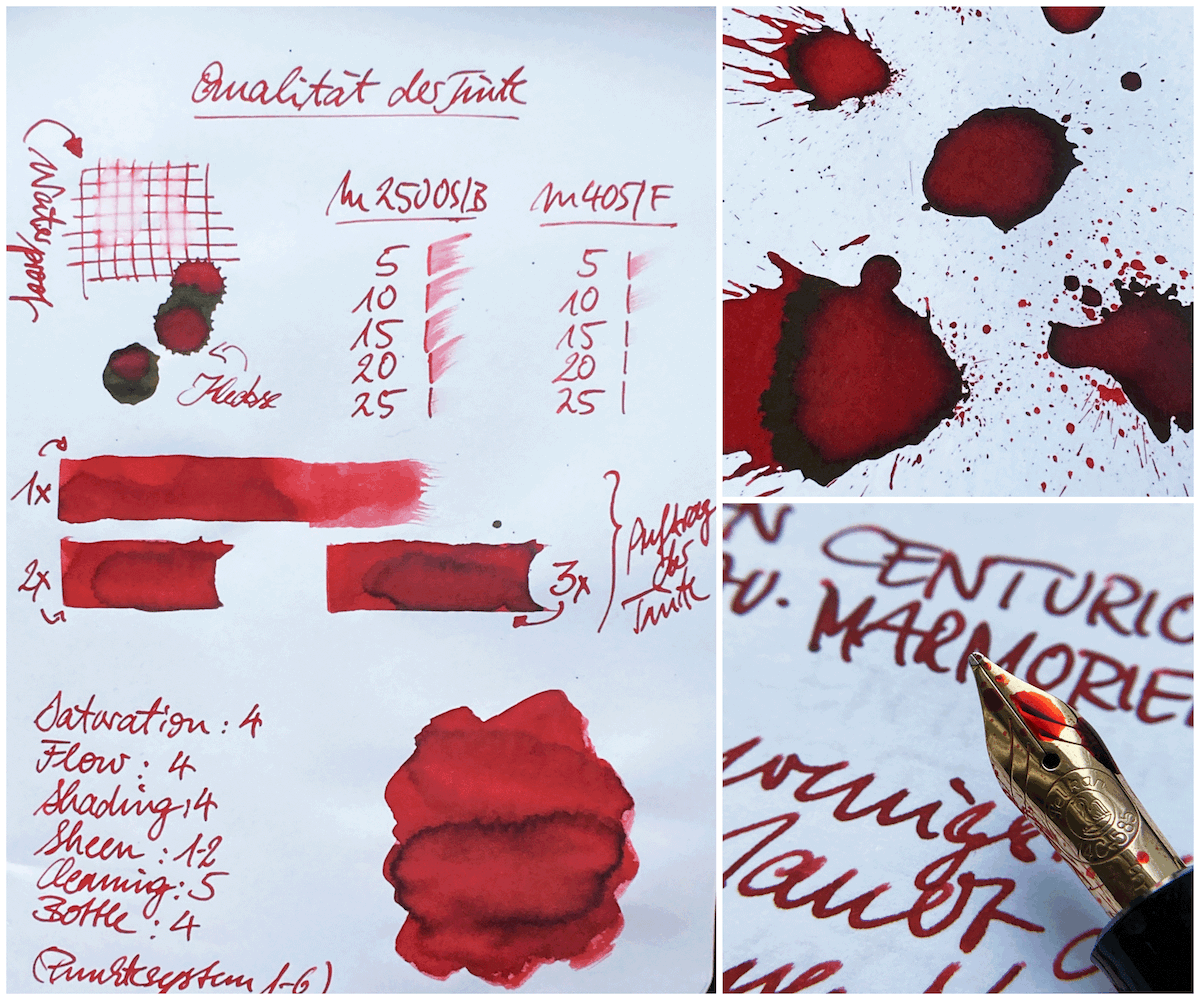 Qualität der Tinte
Waterproof
M 250 OS/B
M405/F
5
10
15
20
25
5
10
15
20
25
Kleckse
1x
2x
3x
Auftrag
der
Tinte
Saturation : 4
Flow : 4
Shading : 4
Sheen : 1-2
Cleaning : 5
Bottle : 4
(Punktesystem 1-6)
CENTURIO
MARMORIE
585